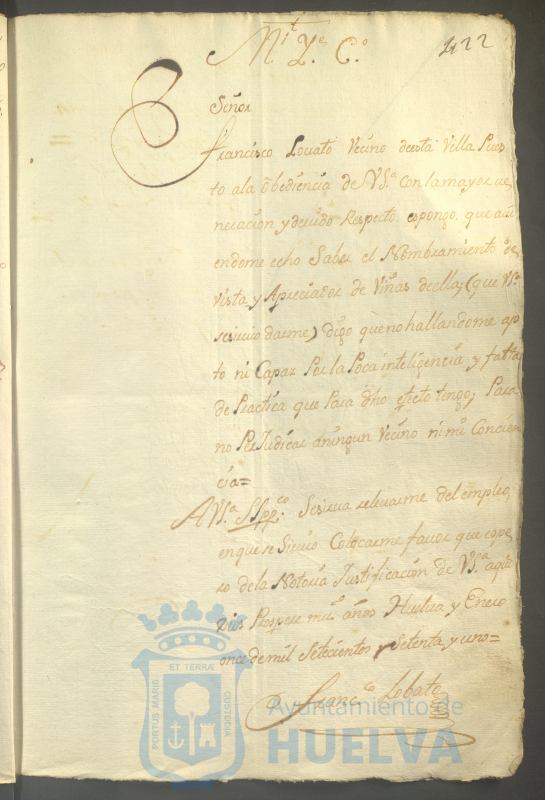 M.^t Y.^e C.^o
422
Señor
Francisco Lovato Vecino deesta Villa Pues
to ala Obediencia de VS.^a con lamayor ve
neracion y devido Respecto, espongo, que avi
endome echo Saber el Nombramiento de
vista y Apreciador de Viñas deella; (que VS.^a
sesirvio darme) digo queno hallandome ap
to ni Capaz Por la Poca inteligencia y falta
de Practica que Para dho efecto tengo; Para
no PerJudicar aningun Vecino ni mi Concien
cia=
A VS.^a Supp.^co Sesirva relevarme del empleo,
enque se Sirvio Colocarme favor que espe
ro dela Notoria Justificacion de VS.^a aqui
Dios Prospere mu.^s años Huelva y Enero
once demil Setecientos y Setenta y uno=
Franc.^co Lobato
PORTUS MARIS ET TERRÆ CUSTODIA
Ayuntamiento de
HUELVA